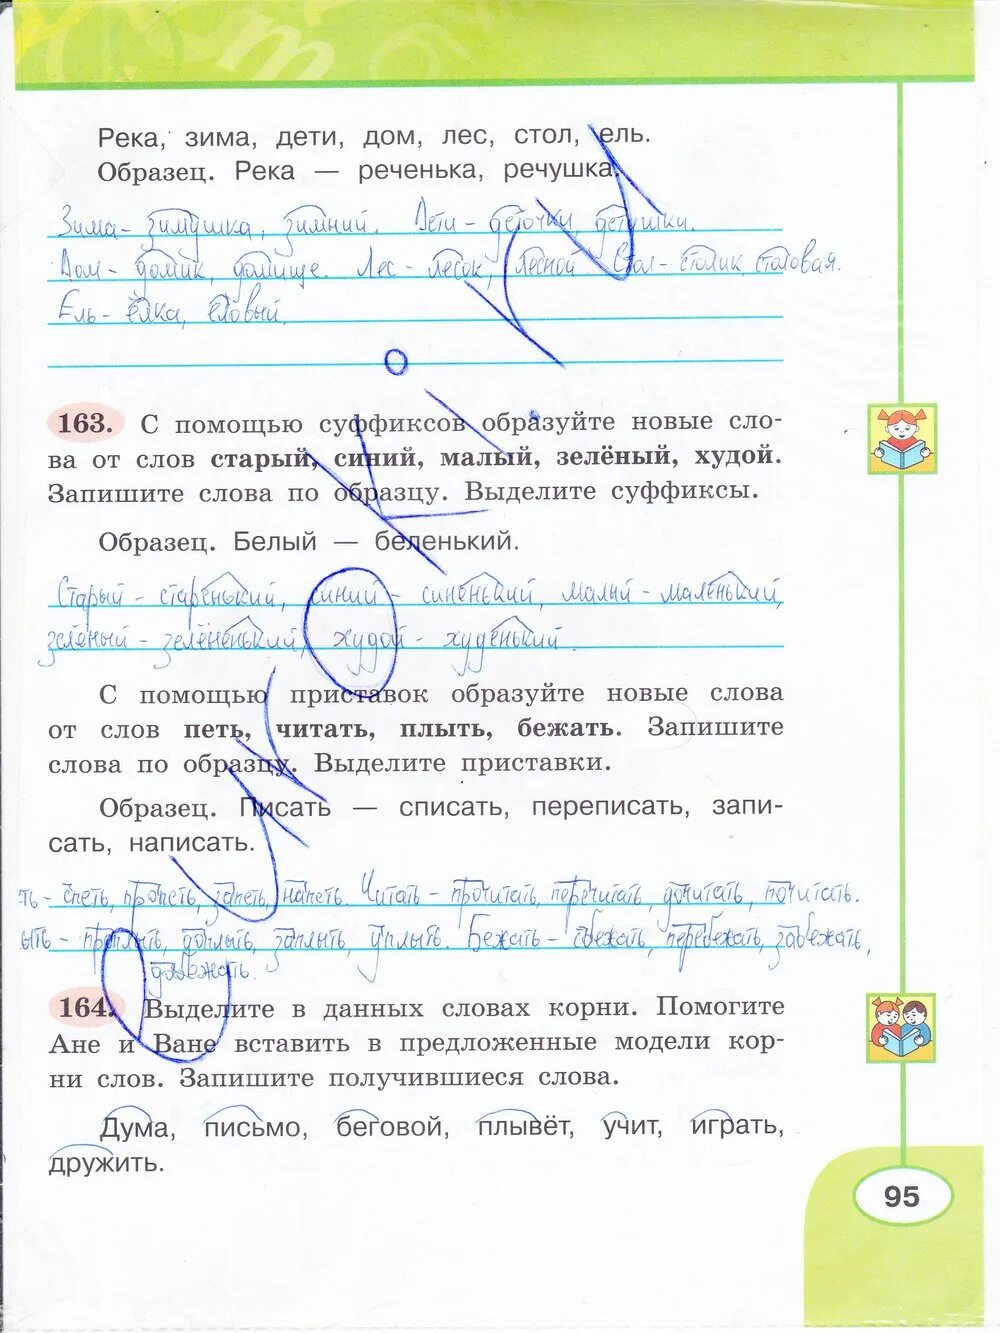 Река, зима, дети, дом, лес, стол, ель.
Образец. Река — реченька, речушка.
Зима - зимушка, зимний. Дети - деточки, детушки.
Дом - домик, домище. Лес - лесок, лесной. Стол - столик, столовая.
Ель - ёлка, еловый.
163. С помощью суффиксов образуйте новые сло-
ва от слов старый, синий, малый, зелёный, худой.
Запишите слова по образцу. Выделите суффиксы.
Образец. Белый — беленький.
Старый - старенький, синий - синенький, малый - маленький,
зелёный - зелёненький, худой - худенький.
С помощью приставок образуйте новые слова
от слов петь, читать, плыть, бежать. Запишите
слова по образцу. Выделите приставки.
Образец. Писать — списать, переписать, запи-
сать, написать.
ть - спеть, пропеть, запеть, напеть. Читать - прочитать, перечитать, дочитать, почитать.
ыть - проплыть, доплыть, заплыть, уплыть. Бежать - сбежать, перебежать, забежать,
добежать.
164. Выделите в данных словах корни. Помогите
Ане и Ване вставить в предложенные модели кор-
ни слов. Запишите получившиеся слова.
Дума, письмо, беговой, плывёт, учит, играть,
дружить.
95